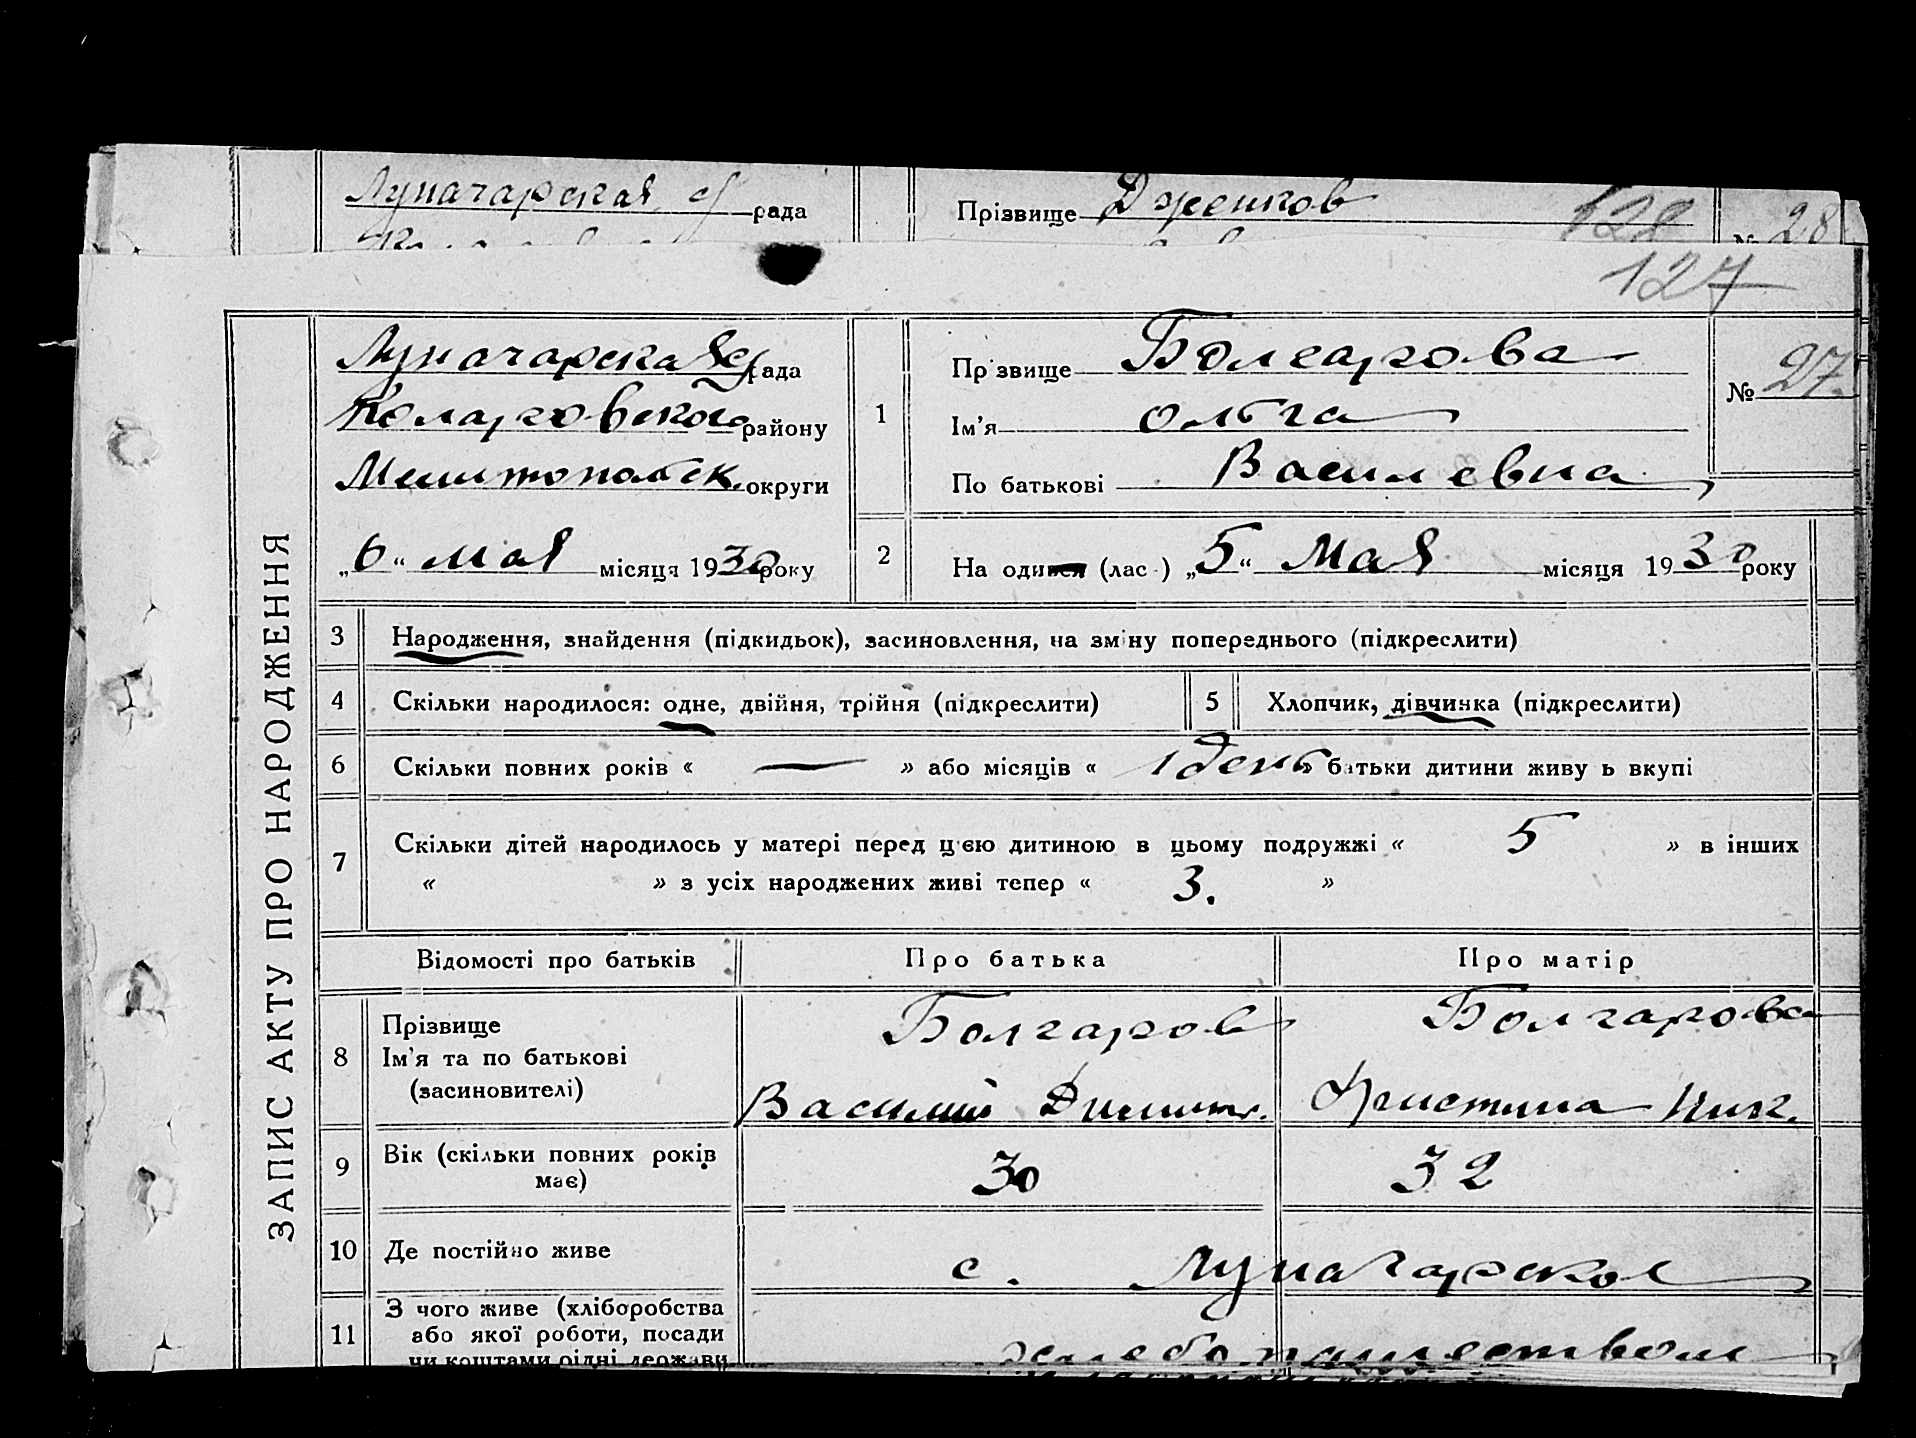 Луначарская с/ рада
Прізвище Дженков
128
№ 28
127
ЗАПИС АКТУ ПРО НАРОДЖЕННЯ
Луначарская с/рада
Коларовского району
Мелитопольск. округи
„6“ мая місяця 1930 року
1
Пр звище Болгарова
Ім'я Ольга
По батькові Василевна
№ 27.
2
На один ся (лас ) „5“ Мая місяця 1930 року
3 Народження, знайдення (підкидьок), засиновлення, на зм ну попереднього (підкреслити)
4 Скільки народилося: одне, двійня, трійня (підкреслити)
5 Хлопчик, дівчинка (підкреслити)
6 Скільки повних років « — » або місяців « 1 день » батьки дитини живу ь вкупі
7 Скільки дітей народилось у матері перед ц єю дитиною в цьому подружжі « 5 » в інших
« » з усіх народжених живі тепер « 3. »
Відомості про батьків Про батька Про матір
8 Прізвище Болгаров Болгарова
Ім'я та по батькові
(засиновителі) Василий Димитр. Христина Ник.
9 Вік (скільки повних років
має) 30 32
10 Де постійно живе с. Луначарское
11 З чого живе (хліборобства
або якої роботи, посади
чи коштами рідні держави хлебопашеством